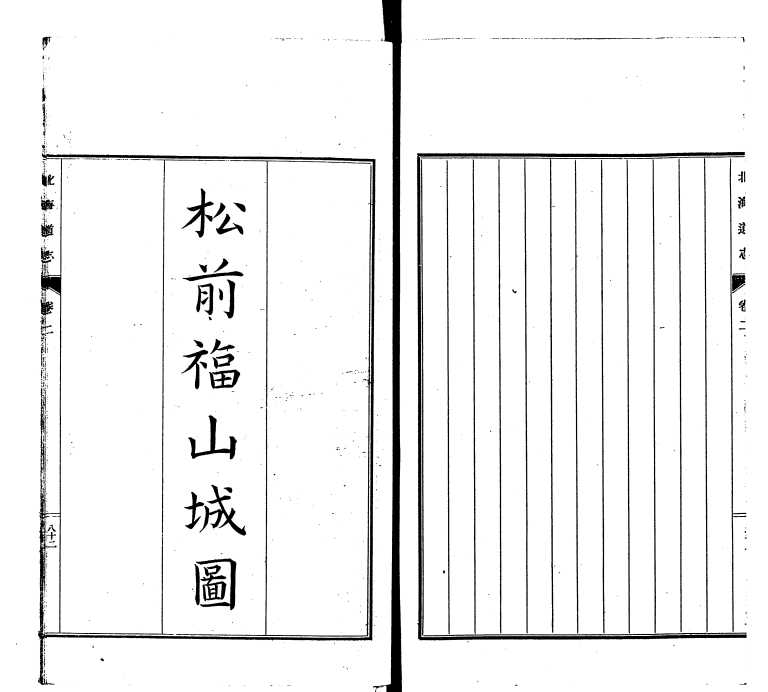 北海道志
卷二
松前福山城圖
北海道志
卷二
八十二